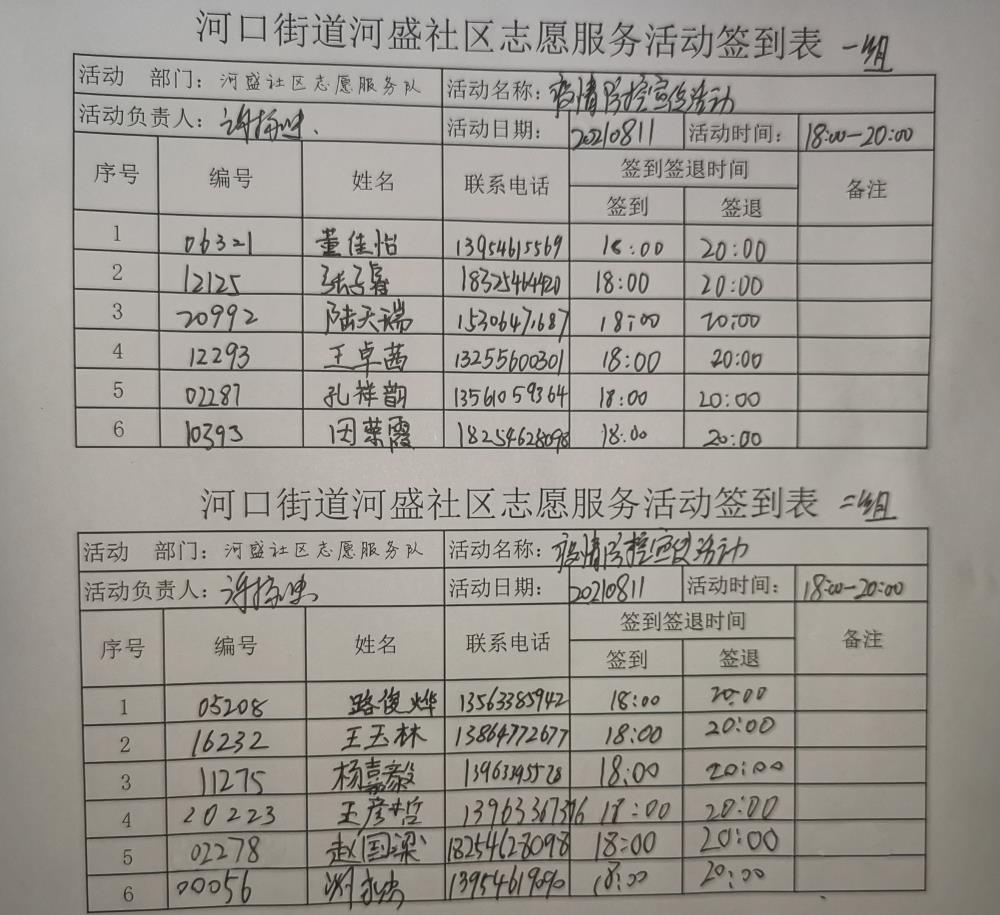 河口街道河盛社区志愿服务活动签到表 一组
活动 部门：河盛社区志愿服务队 活动名称：疫情防控宣传活动
活动负责人： 活动日期：20210811 活动时间：18:00-20:00
序号 编号 姓名 联系电话 签到签退时间 备注
签到 签退
1 06321 董佳怡 13954615569 18:00 20:00
2 12125 18325464420 18:00 20:00
3 20992 陆天瑞 15306471687 18:00 20:00
4 12293 王卓茜 13255600301 18:00 20:00
5 02287 孔祥韵 13561059364 18:00 20:00
6 10393 田荣霞 18254628098 18:00 20:00
河口街道河盛社区志愿服务活动签到表 二组
活动 部门：河盛社区志愿服务队 活动名称：疫情防控宣传活动
活动负责人： 活动日期：20210811 活动时间：18:00-20:00
序号 编号 姓名 联系电话 签到签退时间 备注
签到 签退
1 05208 路俊烨 13563385942 18:00 20:00
2 16232 王玉林 13864772677 18:00 20:00
3 11275 杨嘉毅 18:00 20:00
4 20223 王彦哲 13963367376 18:00 20:00
5 02278 赵国梁 18254628098 18:00 20:00
6 00056 13954619090 18:00 20:00